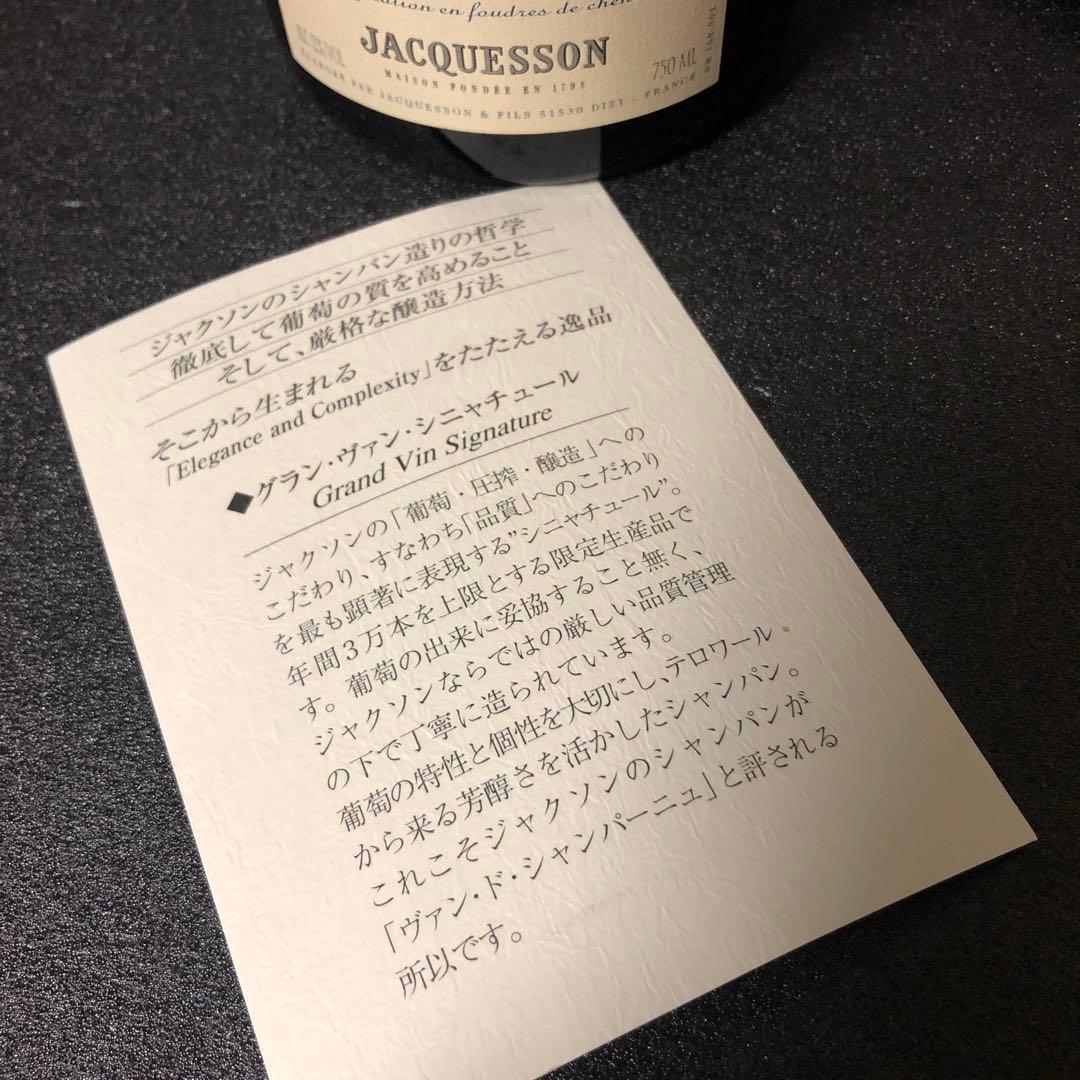 en foudres de
JACQUESSON
MAISON FONDÉE EN 1798
750 ML
PAR JACQUESSON & FILS 51530 DIZY - FRANCE
ジャクソンのシャンパン造りの哲学
徹底して葡萄の質を高めること
そして、厳格な醸造方法
そこから生まれる
「Elegance and Complexity」をたたえる逸品
◆グラン・ヴァン・シニャチュール
Grand Vin Signature
ジャクソンの「葡萄・圧搾・醸造」への
こだわり、すなわち「品質」へのこだわり
を最も顕著に表現する”シニャチュール”。
年間3万本を上限とする限定生産品で
す。葡萄の出来に妥協すること無く、
ジャクソンならではの厳しい品質管理
の下で丁寧に造られています。
葡萄の特性と個性を大切にし、テロワール
から来る芳醇さを活かしたシャンパン。
これこそジャクソンのシャンパンが
「ヴァン・ド・シャンパーニュ」と評される
所以です。